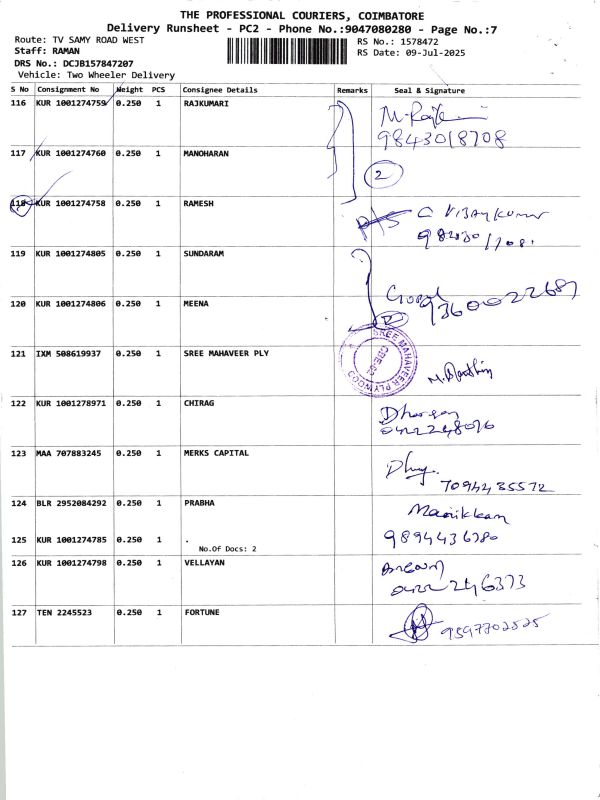 THE PROFESSIONAL COURIERS, COIMBATORE
Delivery Runsheet - PC2 - Phone No.:9047080280 - Page No.:7
Route: TV SAMY ROAD WEST RS No.: 1578472
Staff: RAMAN RS Date: 09-Jul-2025
DRS No.: DCJB157847207
Vehicle: Two Wheeler Delivery
S No Consignment No Weight PCS Consignee Details Remarks Seal & Signature
116 KUR 1001274759 0.250 1 RAJKUMARI
9843018708
117 KUR 1001274760 0.250 1 MANOHARAN
2
118 KUR 1001274758 0.250 1 RAMESH
C VIJAYKUMAR
119 KUR 1001274805 0.250 1 SUNDARAM
120 KUR 1001274806 0.250 1 MEENA
Gopal
9360022687
121 IXM 508619937 0.250 1 SREE MAHAVEER PLY
SREE MAHAVEER PLYWOOD
122 KUR 1001278971 0.250 1 CHIRAG
123 MAA 707883245 0.250 1 MERKS CAPITAL
7094435572
124 BLR 2952084292 0.250 1 PRABHA
Manikkam
125 KUR 1001274785 0.250 1 .
9894436780
No.Of Docs: 2
126 KUR 1001274798 0.250 1 VELLAYAN
0422 246373
127 TEN 2245523 0.250 1 FORTUNE
9597702525